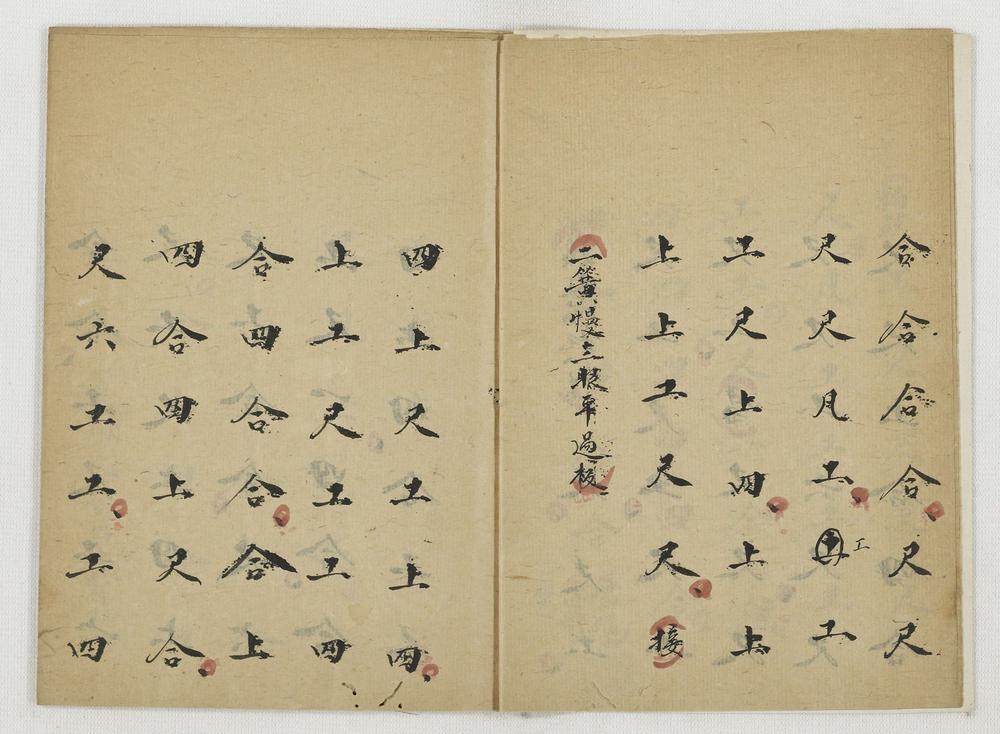 合合合合、尺尺
尺尺凡工、工工
工尺上四、上上
上上工尺尺、接
二簧慢三眼平過板
四上尺工上四、
上工尺工工四
合四合合、合上
四合四上尺合、
尺六工工、工四